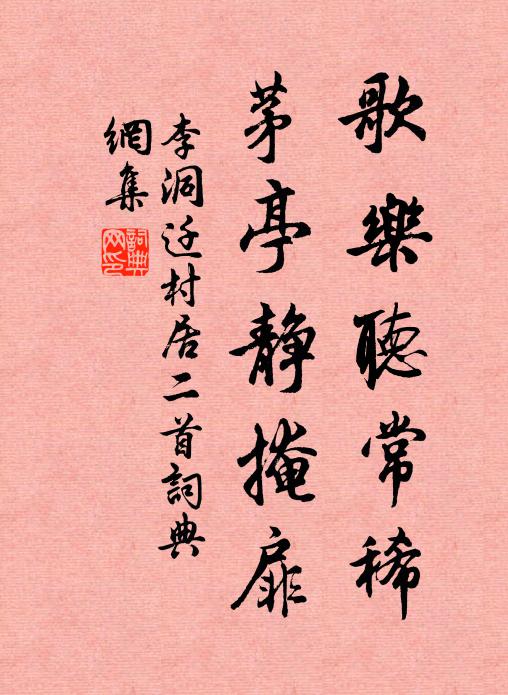 歌樂聽常稀
茅亭靜掩扉
李洞迁村居二首詞典
網集
詞典
网印